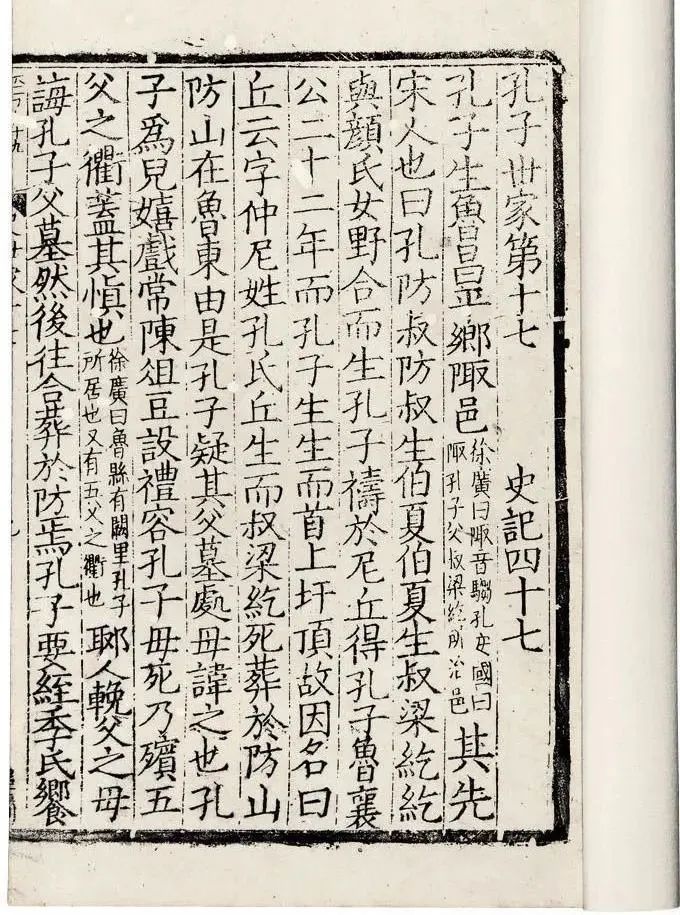 孔子世家第十七　史記四十七
孔子生魯昌平鄉陬邑徐廣曰陬音騶孔安國曰陬孔子父叔梁紇所治邑其先
宋人也曰孔防叔防叔生伯夏伯夏生叔梁紇紇
與顏氏女野合而生孔子禱於尼丘得孔子魯襄
公二十二年而孔子生生而首上圩頂故因名曰
丘云字仲尼姓孔氏丘生而叔梁紇死葬於防山
防山在魯東由是孔子疑其父墓處母諱之也孔
子為兒嬉戲常陳俎豆設禮容孔子母死乃殯五
父之衢蓋其慎也徐廣曰魯縣有闕里孔子所居也又有五父之衢也郰人輓父之母
誨孔子父墓然後往合葬於防焉孔子要絰季氏饗